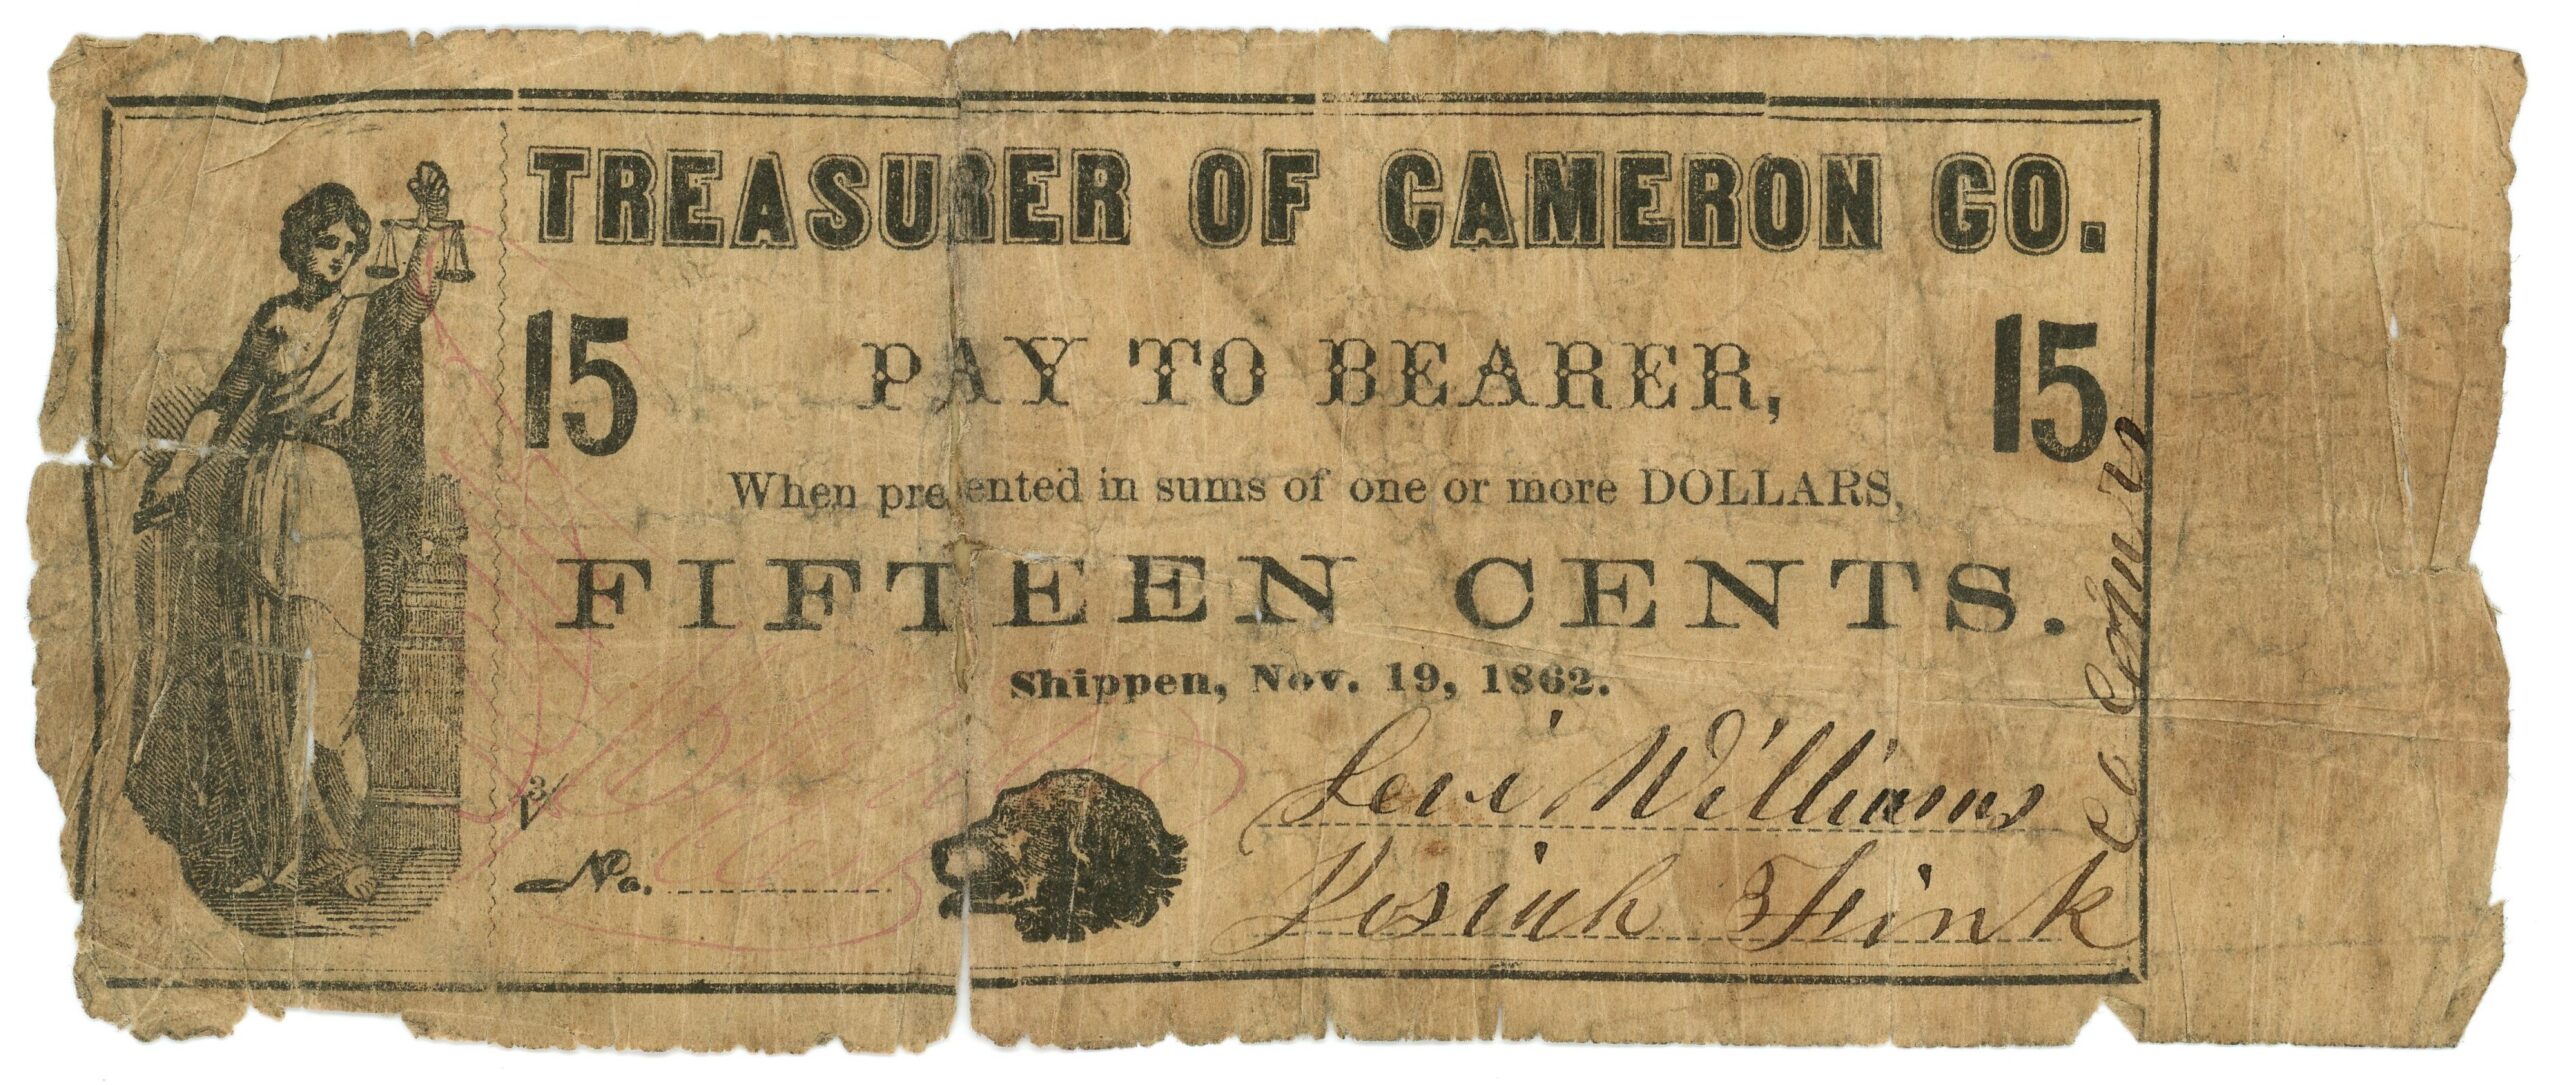 TREASURER OF CAMERON CO.
15 PAY TO BEARER, 15
When presented in sums of one or more DOLLARS,
FIFTEEN CENTS.
Shippen, Nov. 19, 1862.
No.
Levi Williams
Josiah Fink
Co Com